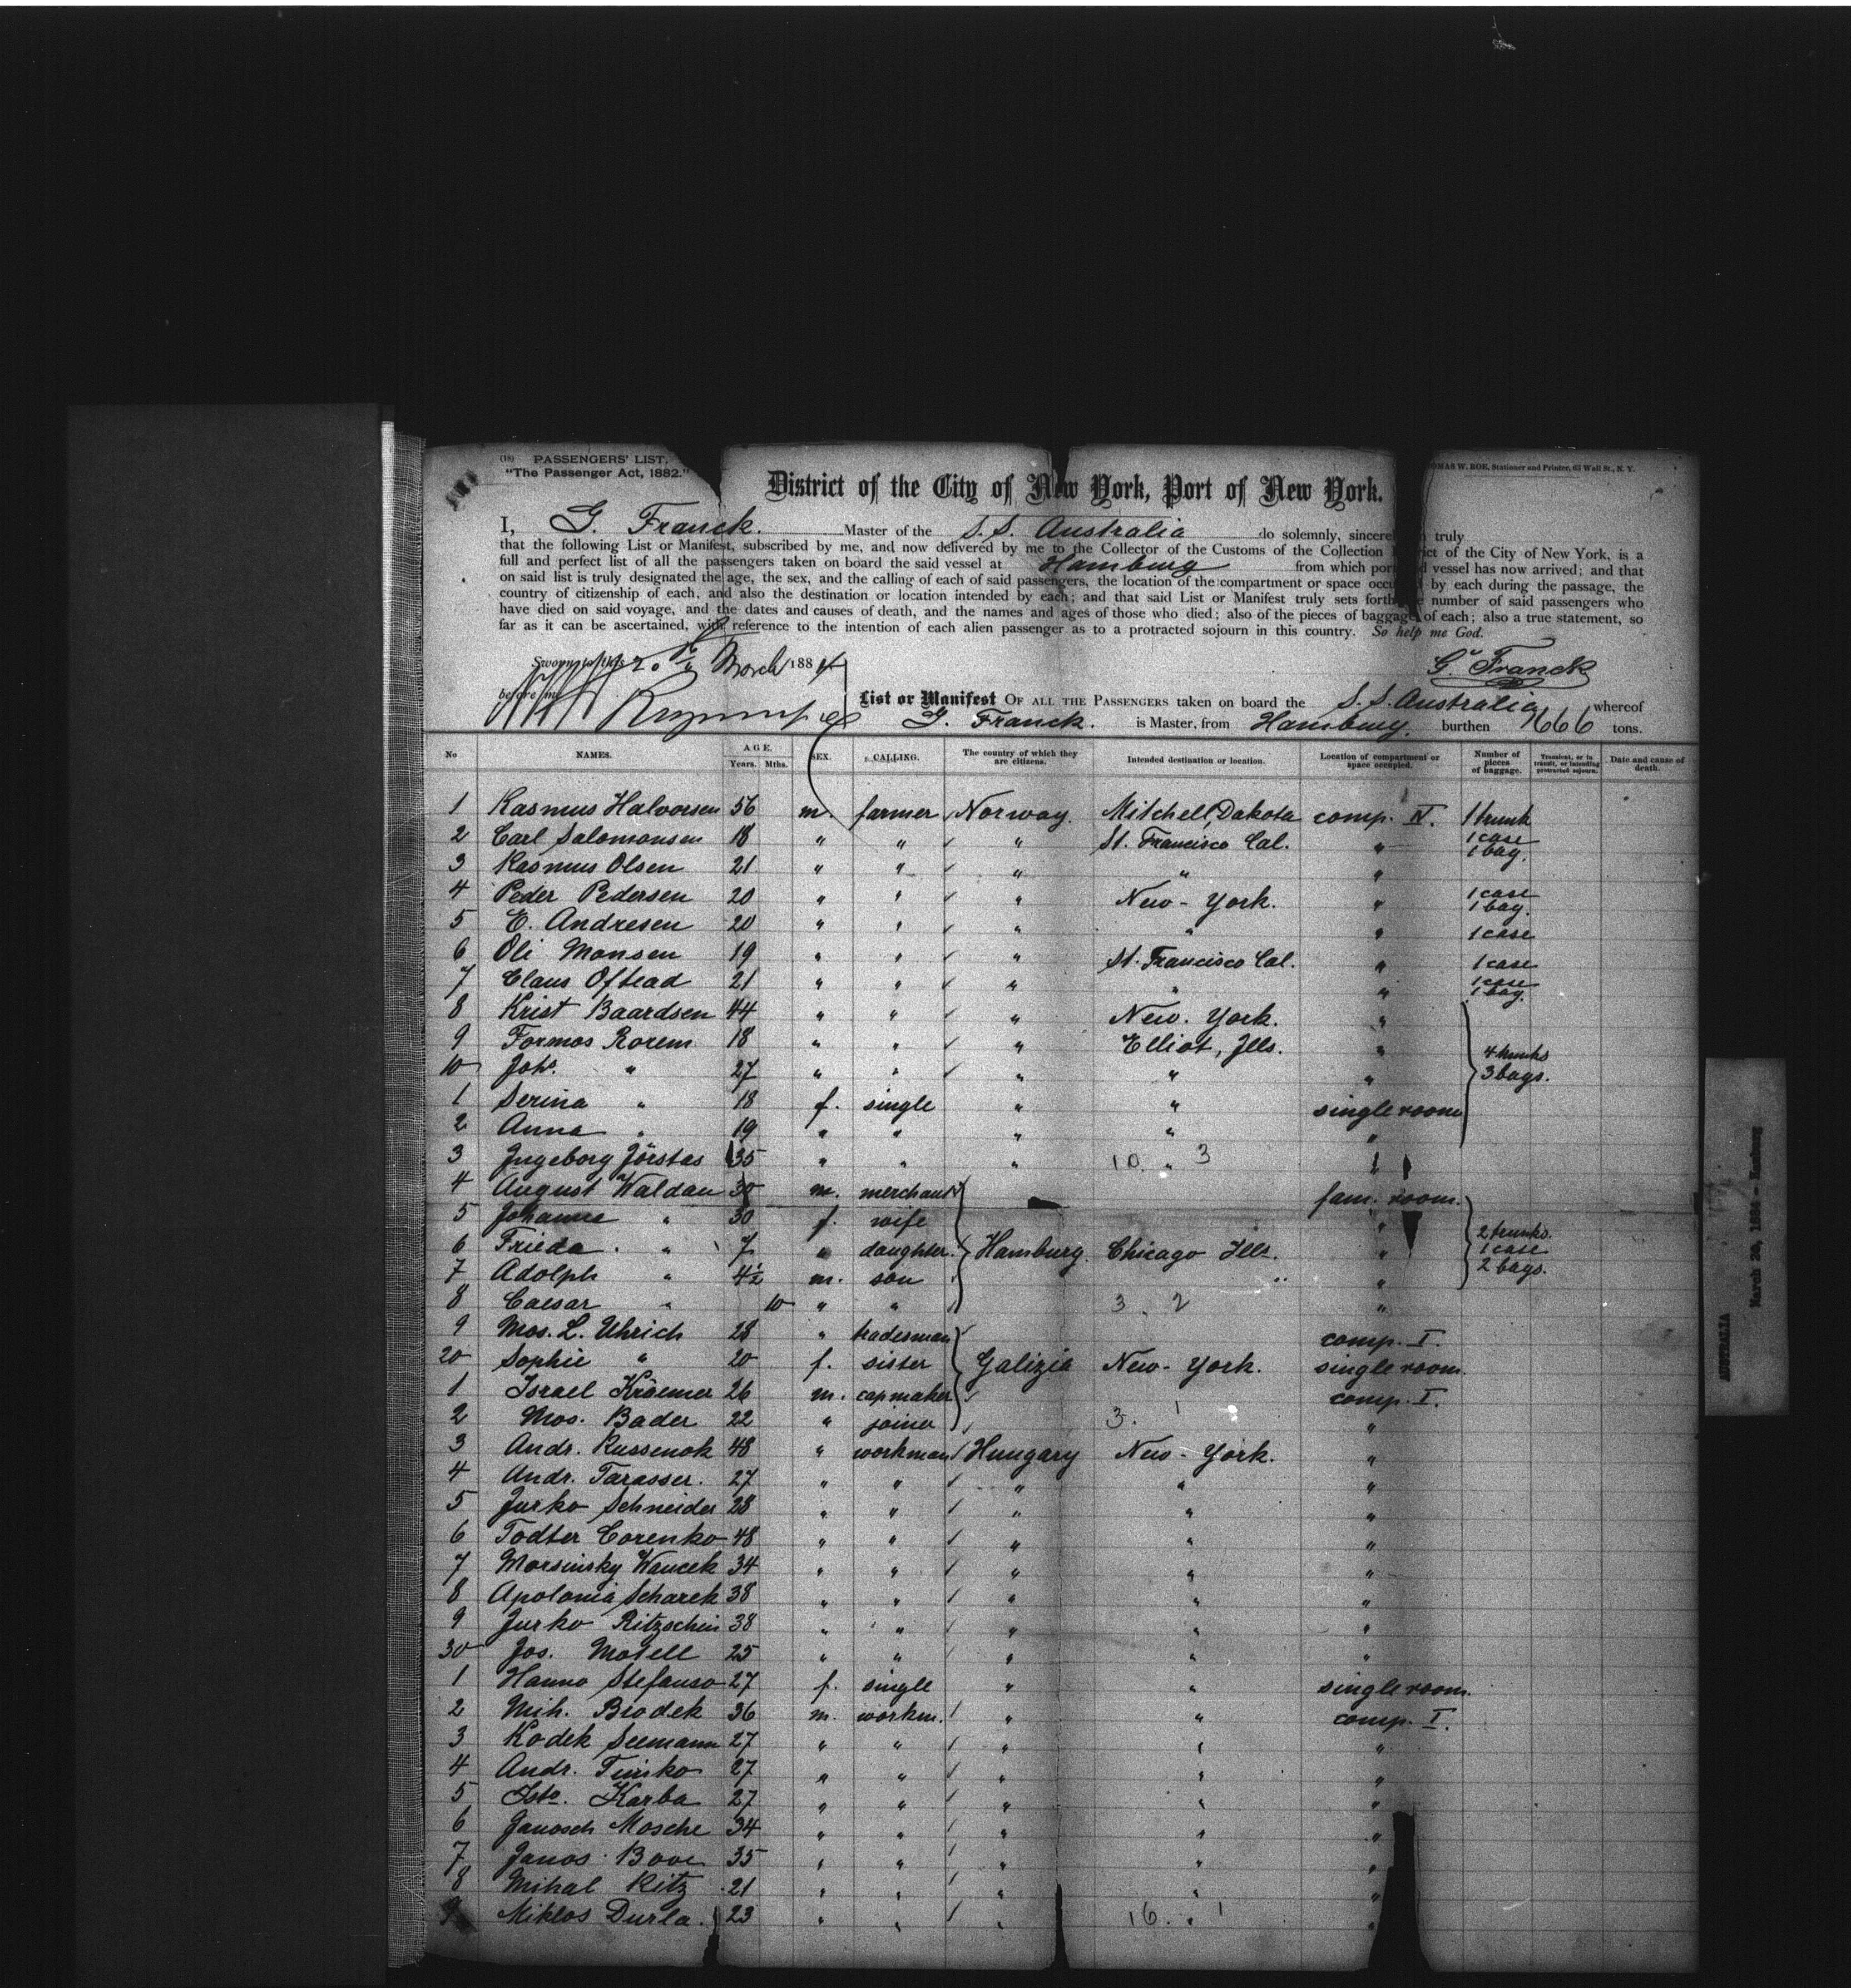 (18) PASSENGERS' LIST,
"The Passenger Act, 1882."
THOMAS W. ROE, Stationer and Printer, 63 Wall St., N. Y.
District of the City of New York, Port of New York.
I, G. Franck. Master of the S. S. Australia do solemnly, sincerely and truly
that the following List or Manifest, subscribed by me, and now delivered by me to the Collector of the Customs of the Collection District of the City of New York, is a
full and perfect list of all the passengers taken on board the said vessel at Hamburg from which port said vessel has now arrived; and that
on said list is truly designated the age, the sex, and the calling of each of said passengers, the location of the compartment or space occupied by each during the passage, the
country of citizenship of each, and also the destination or location intended by each; and that said List or Manifest truly sets forth the number of said passengers who
have died on said voyage, and the dates and causes of death, and the names and ages of those who died; also of the pieces of baggage of each; also a true statement, so
far as it can be ascertained, with reference to the intention of each alien passenger as to a protracted sojourn in this country. So help me God.
Sworn to this March 1884
before me
G. Franck
List or Manifest OF ALL THE PASSENGERS taken on board the S. S. Australia whereof
G. Franck. is Master, from Hamburg. burthen 1666 tons.
No NAMES. AGE. Years. Mths. SEX. CALLING. The country of which they are citizens. Intended destination or location. Location of compartment or space occupied. Number of pieces of baggage. Transient, or in transit, or intending protracted sojourn. Date and cause of death.
1 Rasmus Halvorsen 56 m. farmer Norway. Mitchell, Dakota comp. IV. 1 trunk
2 Carl Salomonsen 18 " " " St. Francisco Cal. " 1 case 1 bag.
3 Rasmus Olsen 21 " " " " "
4 Peder Pedersen 20 " " " New-York. " 1 case 1 bag.
5 E. Andresen 20 " " " " " 1 case
6 Oli Monsen 19 " " " St. Francisco Cal. " 1 case
7 Claus Oftead 21 " " " " " 1 case 1 bag.
8 Krist Baardsen 44 " " " New. York. "
9 Formos Rorem 18 " " " Elliot, Ills. " 4 trunks
10 Johs. " 27 " " " " " 3 bags.
1 Serina " 18 f. single " " single room
2 Anna " 19 " " " " "
3 Ingeborg Jörstas 35 " " " 10 " 3 "
4 August Waldau 30 m. merchant fam. room.
5 Johanne " 30 f. wife " 2 trunks.
6 Frieda " 7 " daughter Hamburg. Chicago Ills. " 1 case
7 Adolph " 4½ m. son " " 2 bags.
8 Caesar " 10 " " 3 . 2 "
9 Mos. L. Uhrich 28 " tradesman comp. I.
20 Sophie " 20 f. sister Galizia New-York. single room.
1 Israel Krämer 26 m. capmaker comp. I.
2 Mos. Bader 22 " joiner 3. 1 "
3 Andr. Russenok 48 " workman Hungary New-York. "
4 Andr. Tarasser. 27 " " " " "
5 Jurko Schneider 28 " " " " "
6 Todter Corenko 48 " " " " "
7 Morsinsky Wancek 34 " " " " "
8 Apolonia Scharek 38 " " " " "
9 Jurko Ritzschin 38 " " " " "
30 Jos. Motell 25 " " " " "
1 Hanno Stefanso 27 f. single " " single room.
2 Mih. Brodek 36 m. workm. " " comp. I.
3 Kodek Seemann 27 " " " " "
4 Andr. Timko 27 " " " " "
5 Karba 27 " " " " "
6 Janosch Mosche 34 " " " " "
7 Janos Bove 35 " " " " "
8 Mihal Ritz 21 " " " " "
9 Miklos Durla. 23 " " " 16. " 1 "
AUSTRALIA
March 20, 1884 - Hamburg